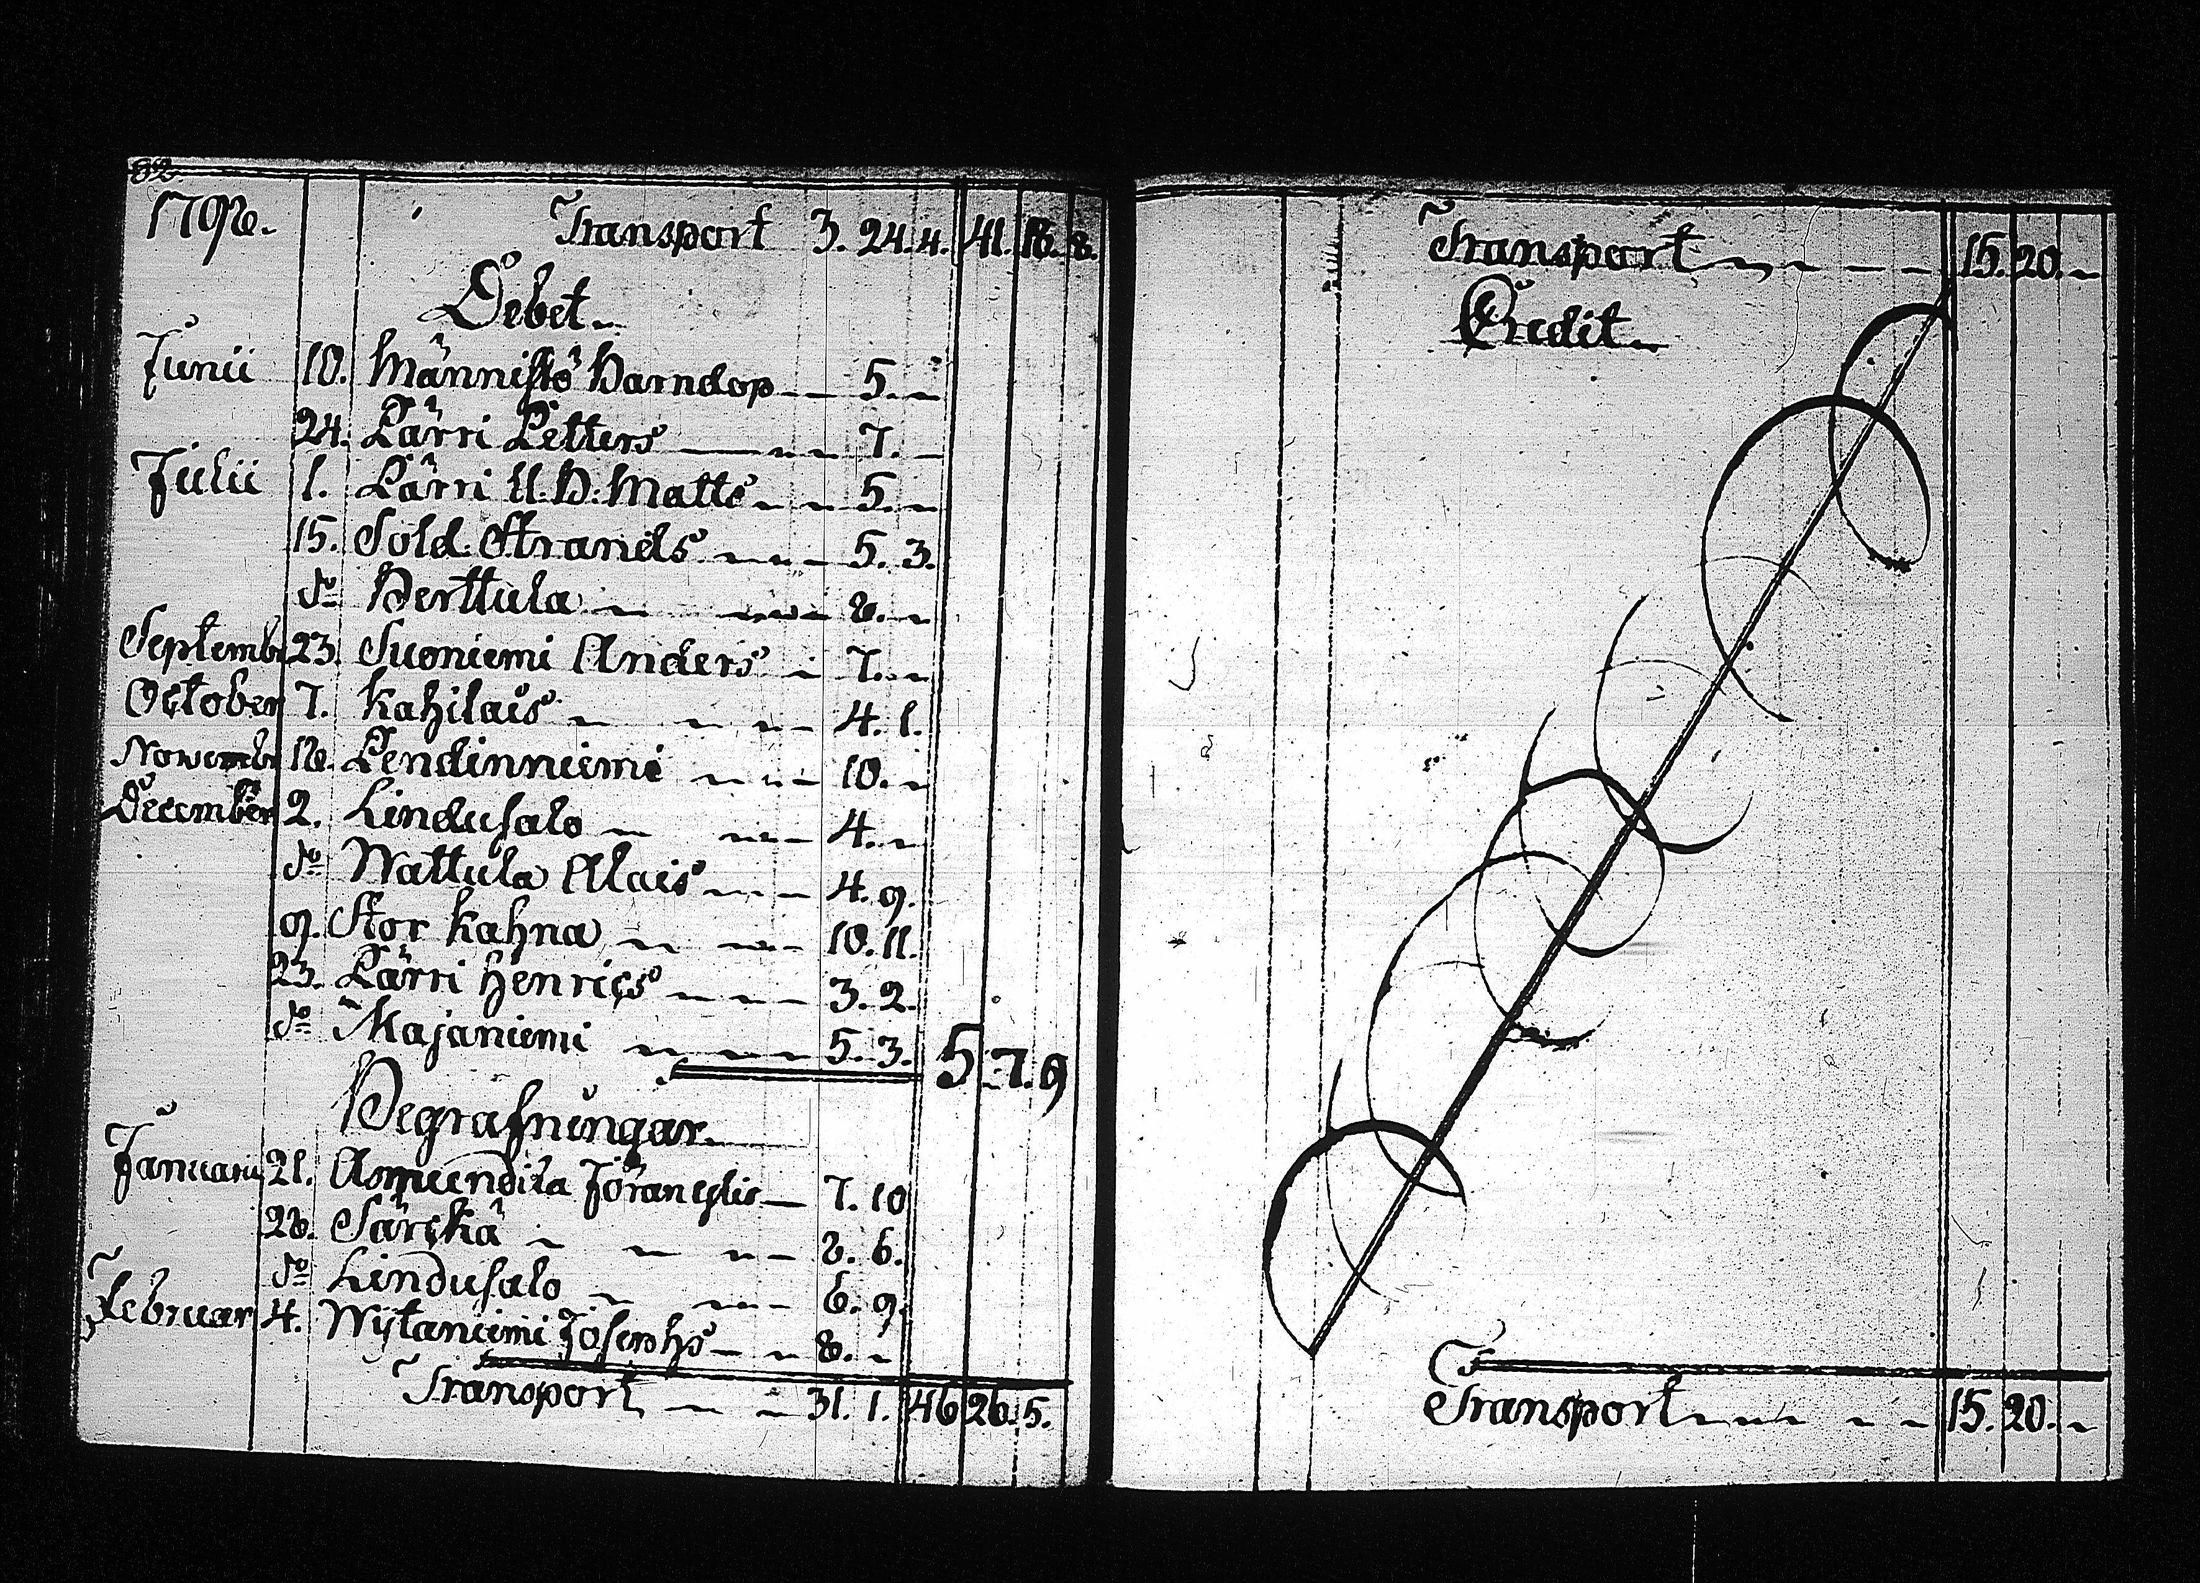 82.
1798. Transport 3. 24. 4. 41. 18. 8.
Debet
Junii 10. Männistö Barndop 5. –
24. Pärri Petters 7. –
Julii 1. Pärri U. B: Matts 5. –
15. Sold: Strands 5. 3.
do Berttula 8. –
Septemb 23. Suoniemi Anders 7. –
October 7. Kahilais 4. 1.
Novembr 18. Pendinniemi 10. –
December 2. Lindusalo 4. –
do Wattula Alais 4. 9.
9. Stor Kahna 10. 11.
23. Pärri Henrics 3. 2.
do Majaniemi 5. 3. 5. 7. 9
Begrafningar
Januarii 21. Asmundila 7. 10
28. Särckä 8. 6.
do Lindusalo 6. 9.
Februar 4. Wijtaniemi Josephs 8. –
Transport 31. 1. 46 26. 5.
Transport 15. 20. –
Credit
Transport 15. 20. –